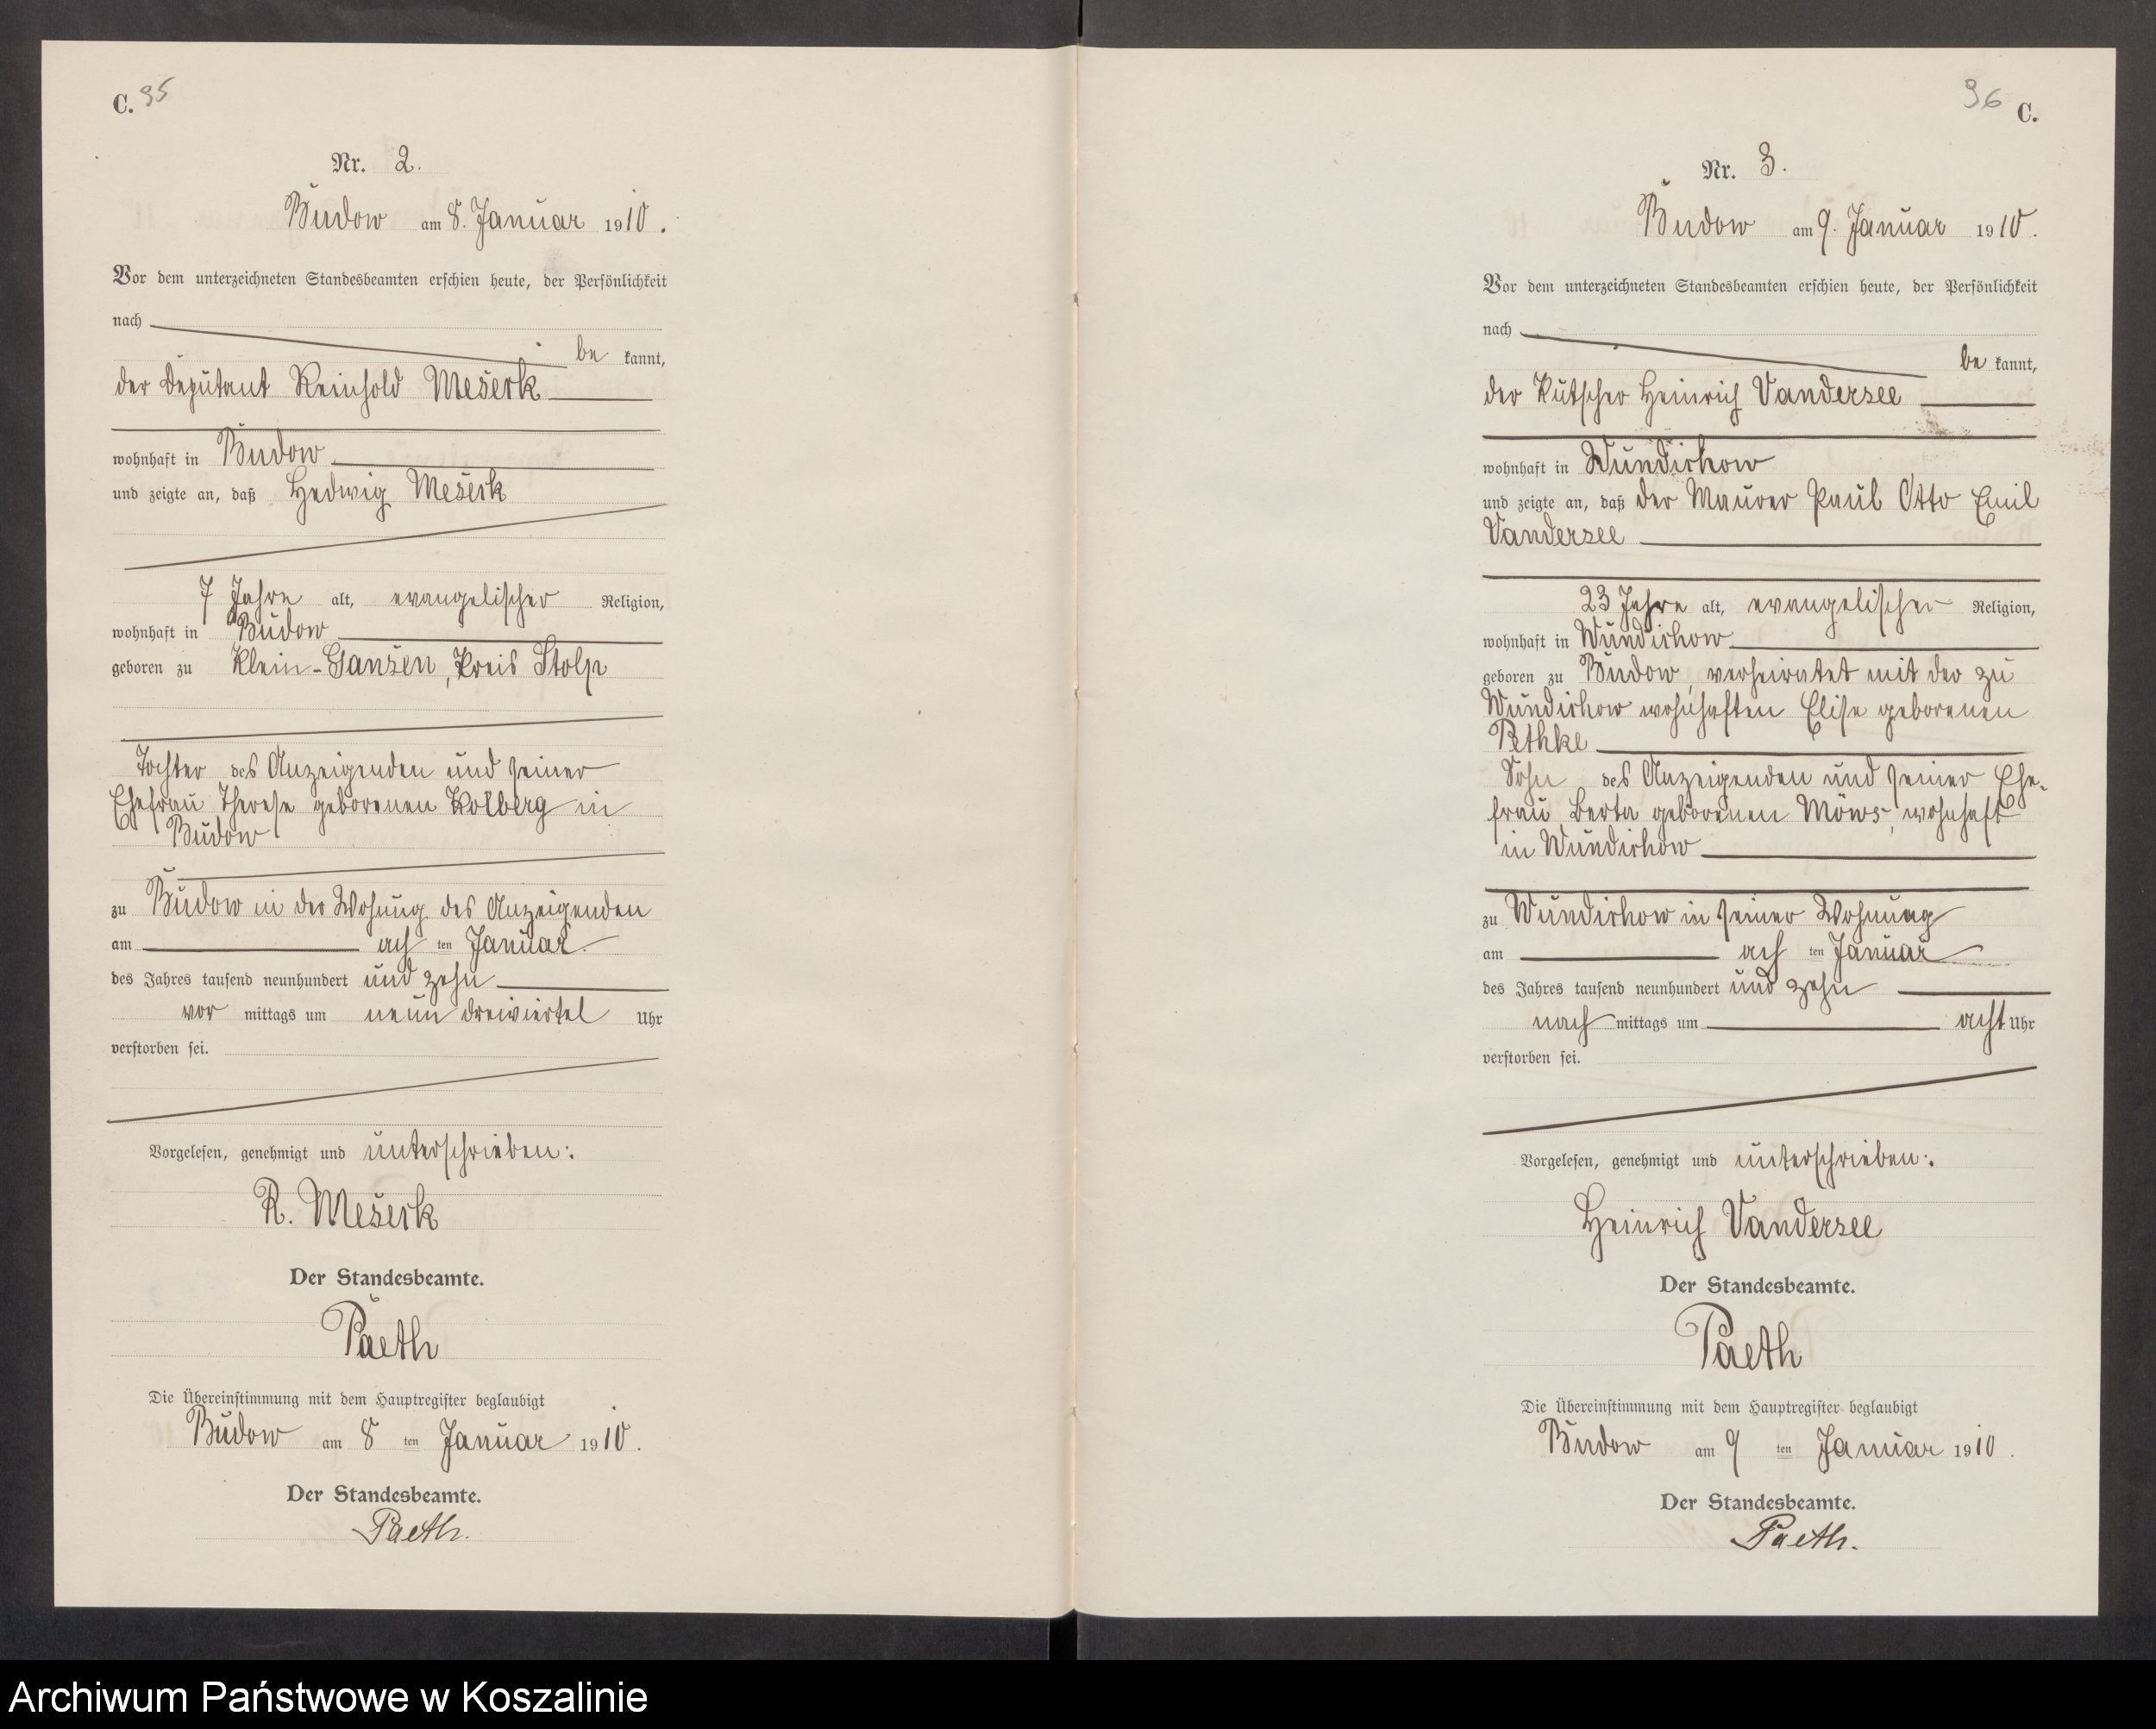 C. 95
Nr. 2.
Budow am 8. Januar 1910.
Vor dem unterzeichneten Standesbeamten erschien heute, der Persönlichkeit
nach
be kannt,
der Deputant Reinhold Meserk
wohnhaft in Budow
und zeigte an, daß Hedwig Meserk
7 Jahre alt, evangelischer Religion,
wohnhaft in Budow
geboren zu Klein-Gansen, Kreis Stolp
Tochter des Anzeigenden und seiner
Ehefrau Therese geborenen Kolberg in
Budow
zu Budow in der Wohnung des Anzeigenden
am ach ten Januar
des Jahres tausend neunhundert und zehn
vor mittags um neun dreiviertel Uhr
verstorben sei.
Vorgelesen, genehmigt und unterschrieben:
R. Meserk
Der Standesbeamte.
Paeth
Die Übereinstimmung mit dem Hauptregister beglaubigt
Budow am 8 ten Januar 1910.
Der Standesbeamte.
Paeth.
96 C.
Nr. 3.
Budow am 9. Januar 1910.
Vor dem unterzeichneten Standesbeamten erschien heute, der Persönlichkeit
nach
be kannt,
der Kutscher Heinrich Vandersee
wohnhaft in Wundichow
und zeigte an, daß der Maurer Paul Otto Emil
Vandersee
23 Jahre alt, evangelischer Religion,
wohnhaft in Wundichow
geboren zu Budow, verheiratet mit der zu
Wundichow wohnhaften Elise geborenen
Pethke
Sohn des Anzeigenden und seiner Ehe-
frau Berta geborenen Möws, wohnhaft
in Wundichow
zu Wundichow in seiner Wohnung
am ach ten Januar
des Jahres tausend neunhundert und zehn
nach mittags um acht Uhr
verstorben sei.
Vorgelesen, genehmigt und unterschrieben:
Heinrich Vandersee
Der Standesbeamte.
Paeth
Die Übereinstimmung mit dem Hauptregister beglaubigt
Budow am 9 ten Januar 1910.
Der Standesbeamte.
Paeth.
Archiwum Państwowe w Koszalinie